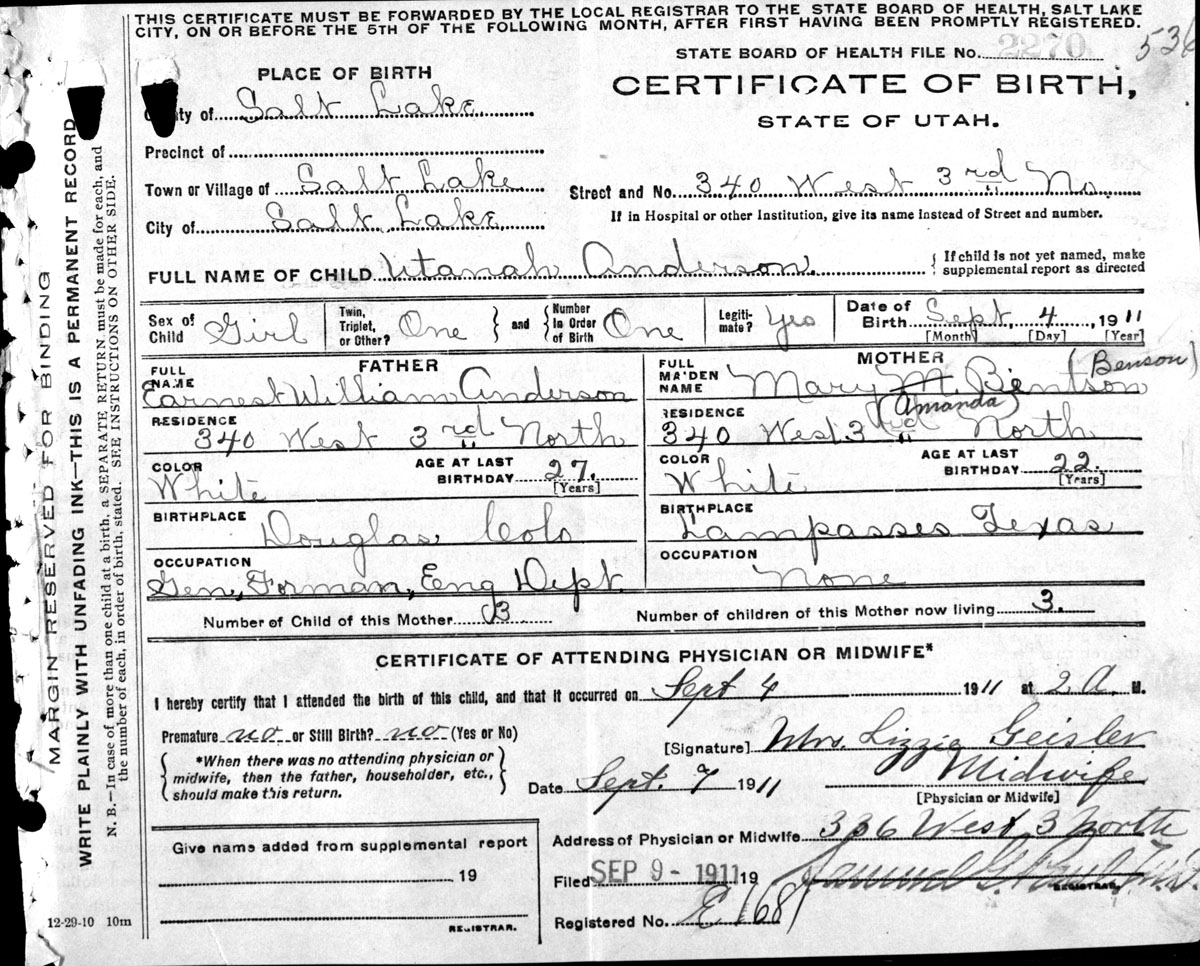 THIS CERTIFICATE MUST BE FORWARDED BY THE LOCAL REGISTRAR TO THE STATE BOARD OF HEALTH, SALT LAKE
CITY, ON OR BEFORE THE 5TH OF THE FOLLOWING MONTH, AFTER FIRST HAVING BEEN PROMPTLY REGISTERED.
STATE BOARD OF HEALTH FILE No. 2270 536
PLACE OF BIRTH
CERTIFICATE OF BIRTH,
STATE OF UTAH.
of Salt Lake
Precinct of
Town or Village of Salt Lake
Street and No. 340 West 3rd No.
City of Salt Lake
If in Hospital or other Institution, give its name instead of Street and number.
FULL NAME OF CHILD Utanah Anderson.
If child is not yet named, make
supplemental report as directed
Sex of Child Girl
Twin, Triplet, or Other? One
and Number in Order of Birth One
Legiti- mate? Yes
Date of Birth Sept. 4 1911
[Month] [Day] [Year]
FATHER
FULL NAME Earnest William Anderson
RESIDENCE 340 West 3rd North
COLOR White
AGE AT LAST BIRTHDAY 27.
[Years]
BIRTHPLACE Douglas Colo
OCCUPATION Gen, Forman, Eng Dept.
MOTHER
FULL MAIDEN NAME Mary M. Bentson (Benson)
(Amanda)
RESIDENCE 340 West 3rd North
COLOR White
AGE AT LAST BIRTHDAY 22.
[Years]
BIRTHPLACE Lampasses Texas
OCCUPATION None
Number of Child of this Mother 3
Number of children of this Mother now living 3.
CERTIFICATE OF ATTENDING PHYSICIAN OR MIDWIFE*
I hereby certify that I attended the birth of this child, and that it occurred on Sept 4 1911 at 2 A. M.
Premature no or Still Birth? no (Yes or No)
*When there was no attending physician or
midwife, then the father, householder, etc.,
should make this return.
[Signature] Mrs. Lizzie Geisler
Midwife
Date Sept. 7 1911
[Physician or Midwife]
Address of Physician or Midwife 336 West 3 North
Give name added from supplemental report
19
REGISTRAR.
Filed SEP 9 - 1911 19
REGISTRAR.
Registered No. E 1681
12-29-10 10m
MARGIN RESERVED FOR BINDING
WRITE PLAINLY WITH UNFADING INK—THIS IS A PERMANENT RECORD
N. B.—In case of more than one child at a birth, a SEPARATE RETURN must be made for each, and
the number of each, in order of birth, stated. SEE INSTRUCTIONS ON OTHER SIDE.